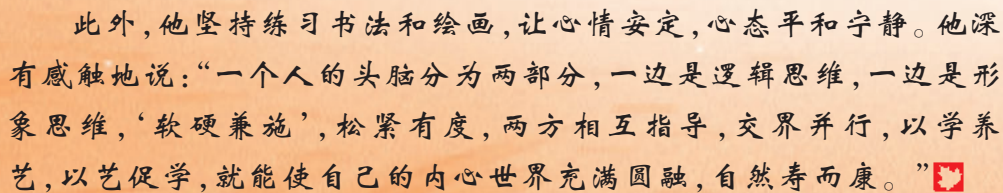 此外,他坚持练习书法和绘画,让心情安定,心态平和宁静。他深
有感触地说:“一个人的头脑分为两部分,一边是逻辑思维,一边是形
象思维,‘软硬兼施’,松紧有度,两方相互指导,交界并行,以学养
艺,以艺促学,就能使自己的内心世界充满圆融,自然寿而康。”